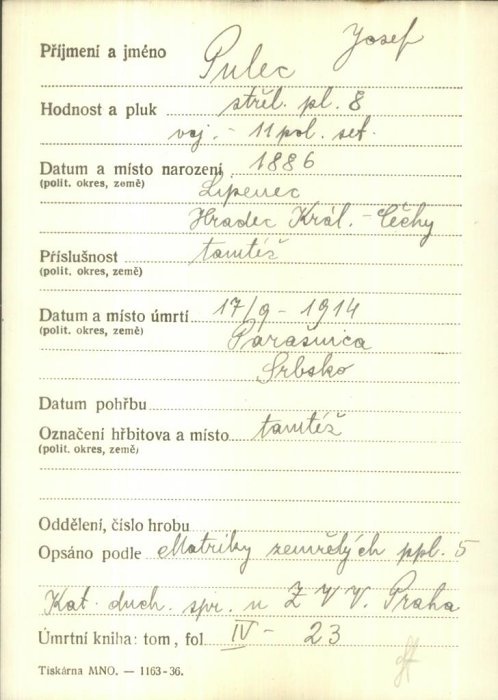 Příjmení a jméno Pulec Josef
Hodnost a pluk střel. pl. 8
voj. - 11 pol. set.
Datum a místo narození 1886
(polit. okres, země) Lipenec
Hradec Král. - Čechy
Příslušnost tamtéž
(polit. okres, země)
Datum a místo úmrtí 17/9 - 1914
(polit. okres, země) Parašnica
Srbsko
Datum pohřbu
Označení hřbitova a místo tamtéž
(polit. okres, země)
Oddělení, číslo hrobu
Opsáno podle Matriky zemřelých ppl. 5
Kat. duch. spr. u Z V V. Praha
Úmrtní kniha: tom, fol. IV - 23
Tiskárna MNO. — 1163-36.